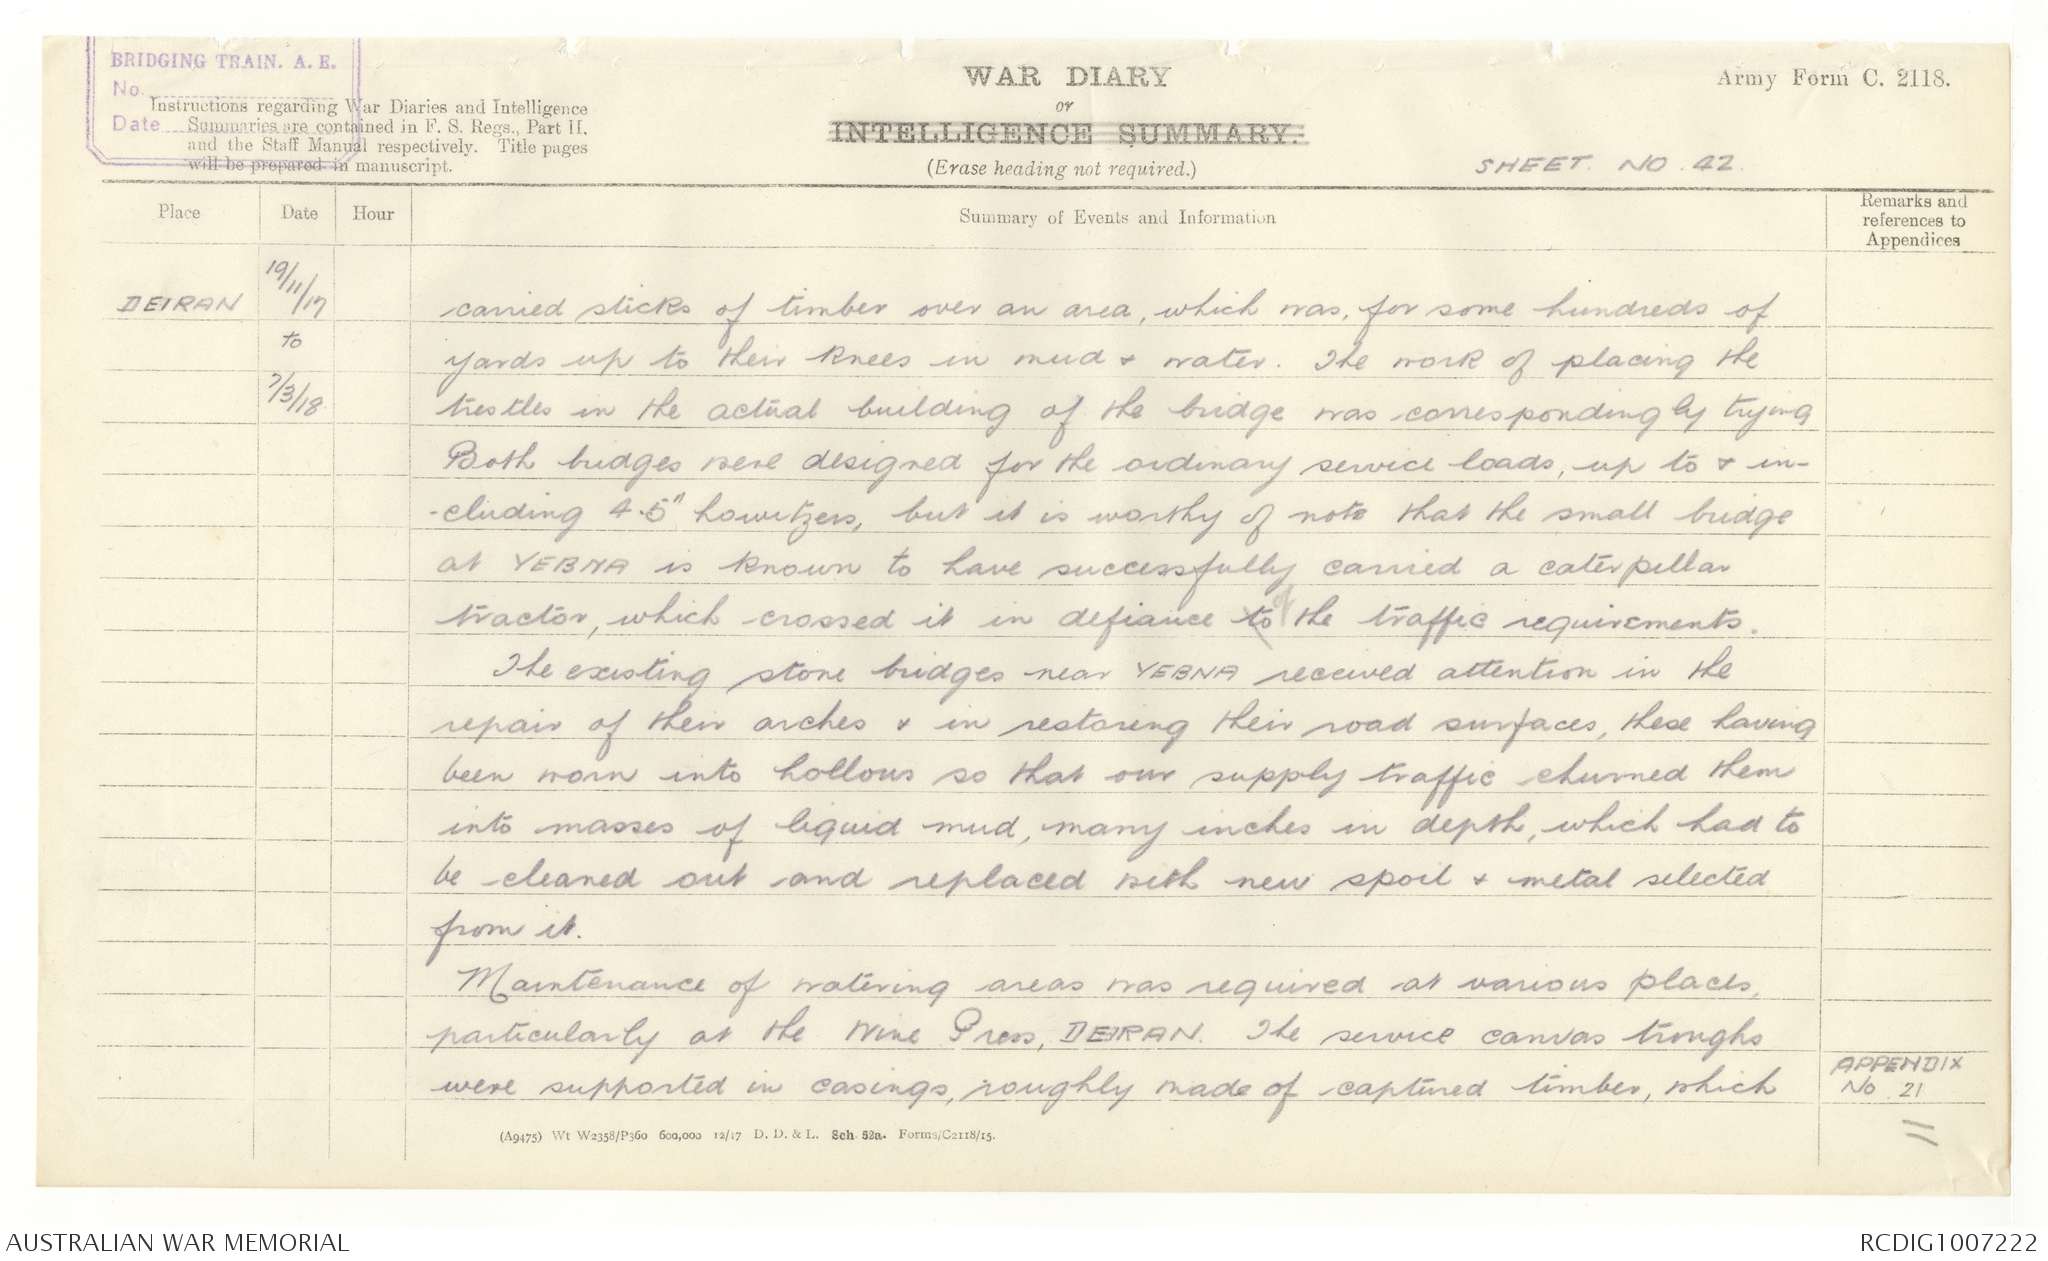 BRIDGING TRAIN. A. E.
No.
Date
Instructions regarding War Diaries and Intelligence
Summaries are contained in F. S. Regs., Part II,
and the Staff Manual respectively. Title pages
will be prepared in manuscript.
WAR DIARY
or
INTELLIGENCE SUMMARY.
(Erase heading not required.)
Army Form C. 2118.
SHEET. NO. 42.
Place
Date
Hour
Summary of Events and Information
Remarks and
references to
Appendices
DEIRAN
19/11/17
to
7/3/18
carried sticks of timber over an area, which was, for some hundreds of
yards up to their knees in mud & water. The work of placing the
trestles in the actual building of the bridge was correspondingly trying
Both bridges were designed for the ordinary service loads, up to & in-
-cluding 4.5" howitzers, but it is worthy of note that the small bridge
at YEBNA is known to have successfully carried a caterpillar
tractor, which crossed it in defiance to of the traffic requirements.
The existing stone bridges near YEBNA received attention in the
repair of their arches & in restoring their road surfaces, these having
been worn into hollows so that our supply traffic churned them
into masses of liquid mud, many inches in depth, which had to
be cleaned out and replaced with new spoil & metal selected
from it.
Maintenance of watering areas was required at various places,
particularly at the Wine Press, DEIRAN. The service canvas troughs
were supported in casings, roughly made of captured timber, which
APPENDIX
No 21
(A9475) Wt W2358/P360 600,000 12/17 D. D. & L. Sch. 52a. Forms/C2118/15.
AUSTRALIAN WAR MEMORIAL
RCDIG1007222